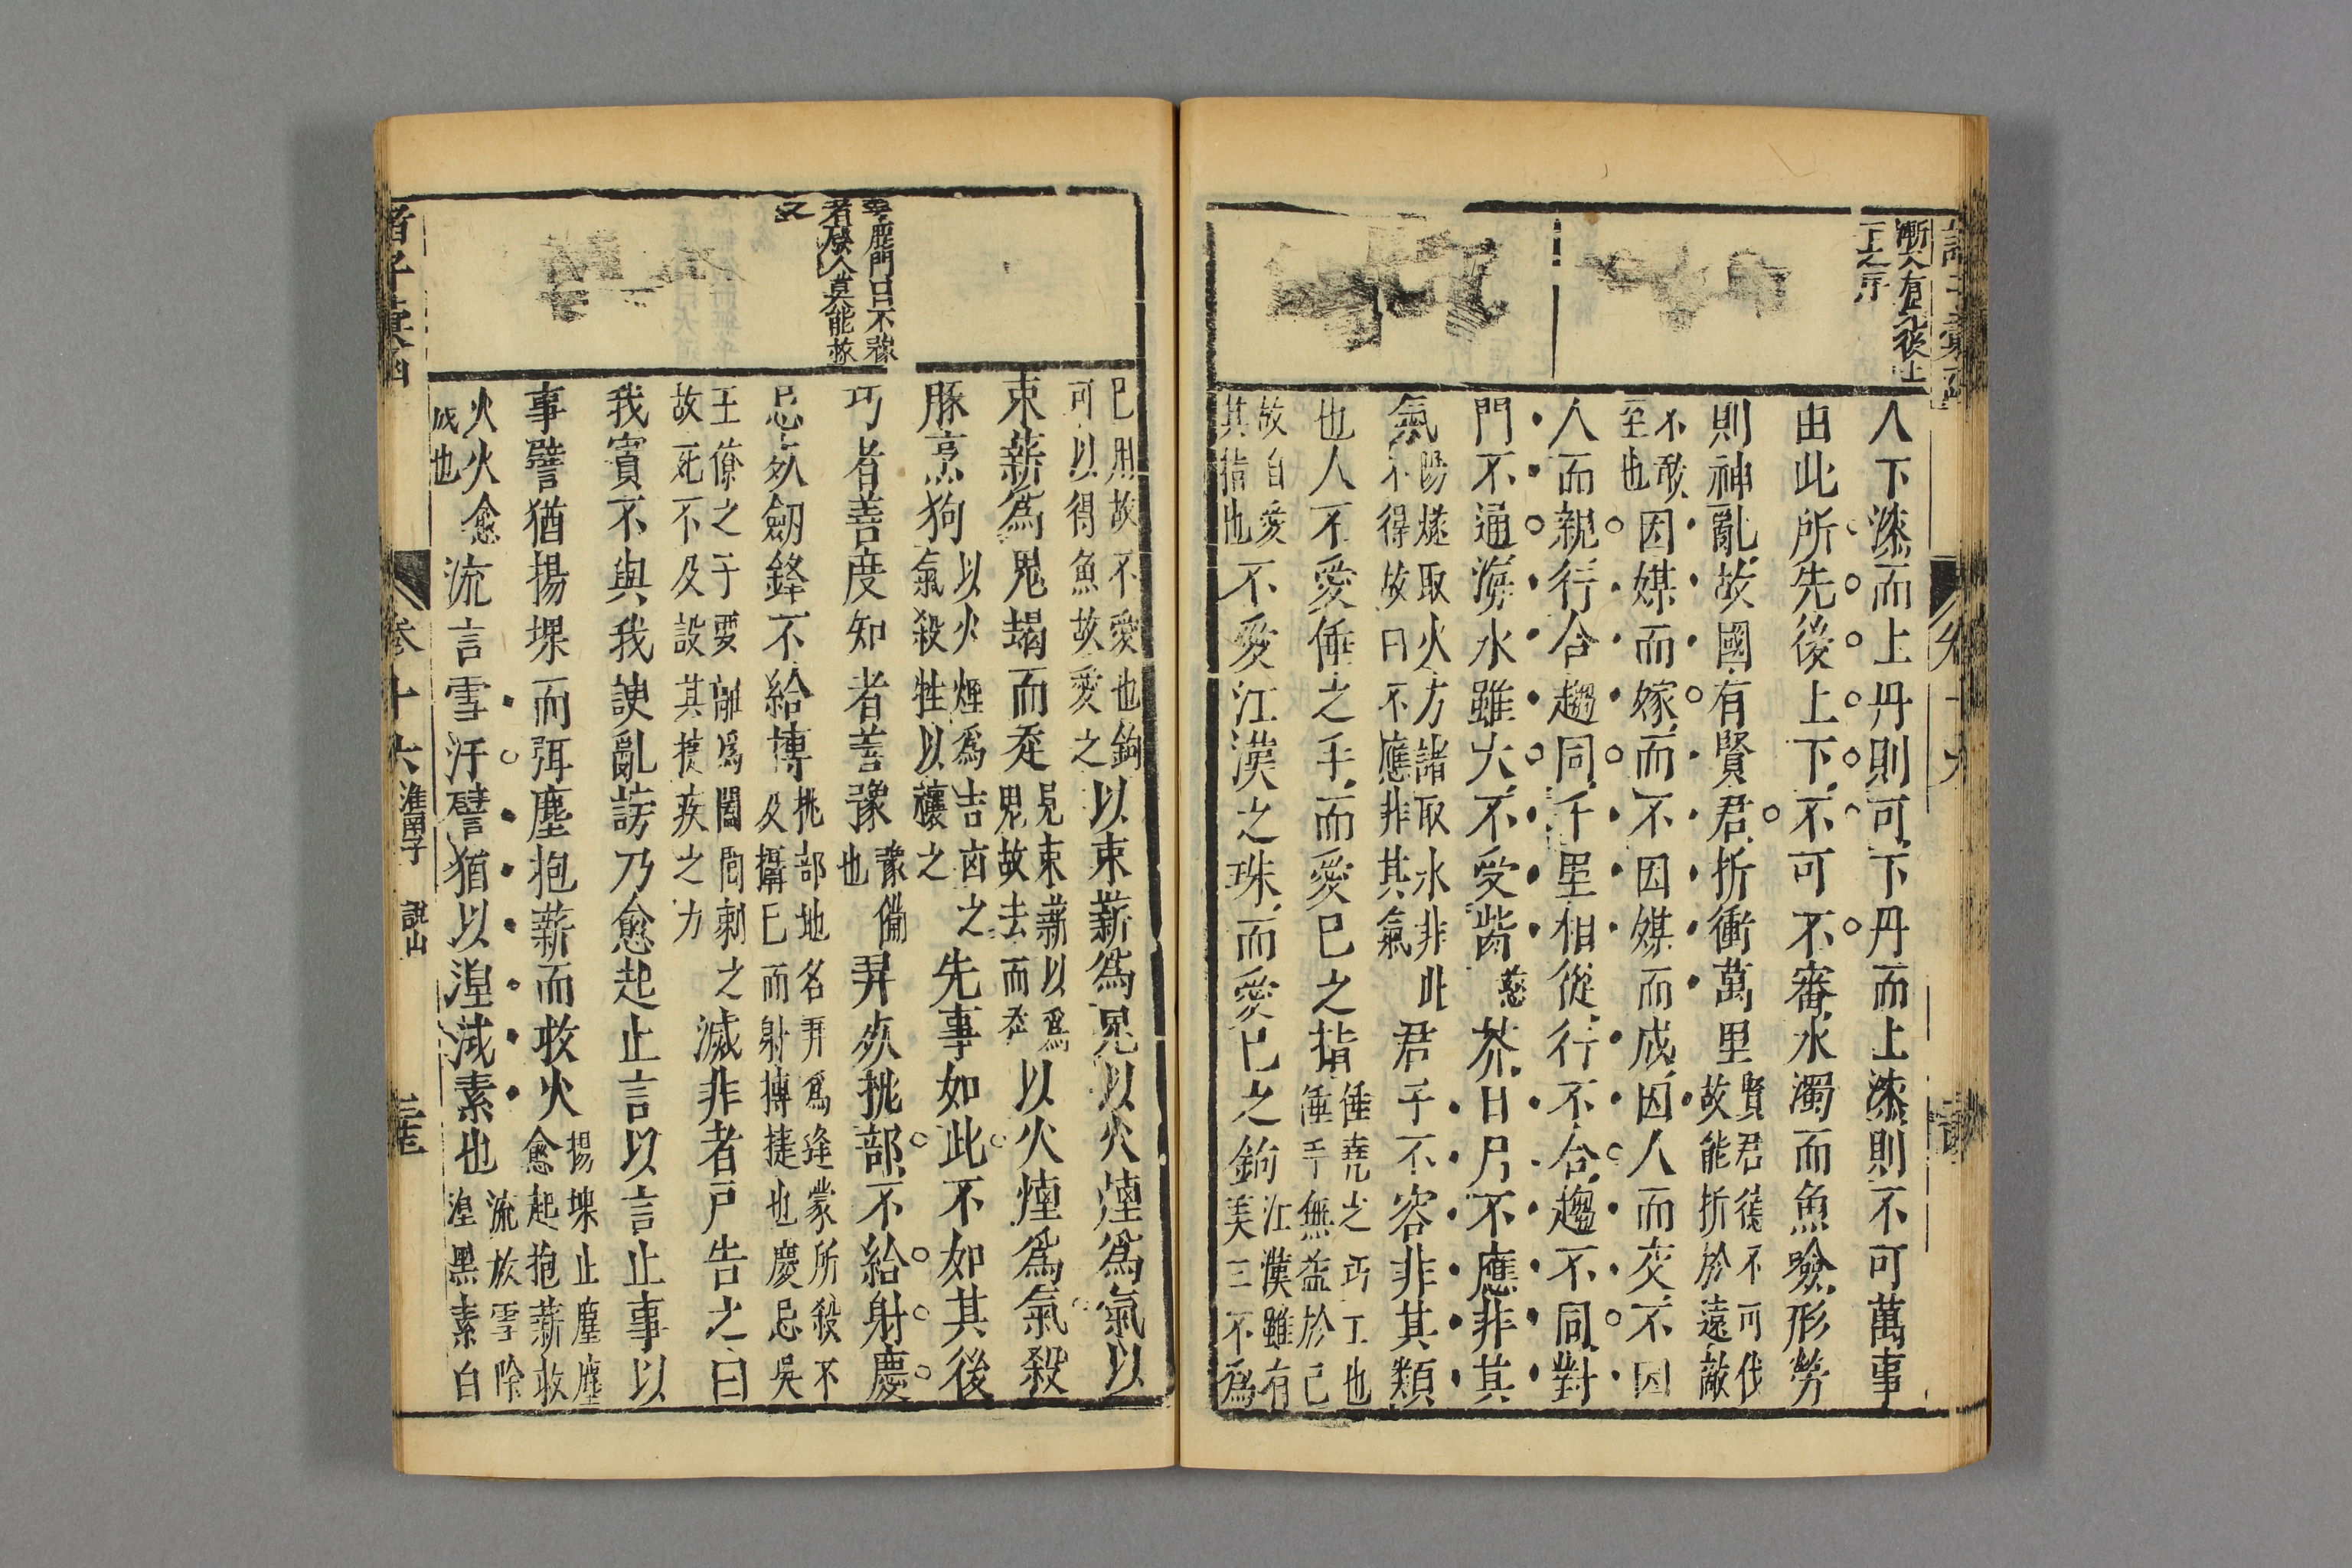 人下漆而上丹則可下丹而上漆則不可萬事
由此所先後上下不可不審水濁而魚噞形勞
則神亂故國有賢君折衝萬里賢君德不可伐故能折於遠敵
不敢至也因媒而嫁而不因媒而成因人而交不因
人而親行合趨同千里相從行不合趨不同對
門不通海水雖大不受胔芥日月不應非其
氣陽燧取火方諸取水非此不得故曰不應非其氣君子不容非其類
也人不愛倕之手而愛己之指倕堯之巧工也倕手無益於己
故自愛其指也不愛江漢之珠而愛己之鉤江漢雖有美玉不為
己用故不愛也鉤可以得魚故愛之以束薪為鬼以火煙為氣以
束薪為鬼朅而走見束薪以為鬼故去而走以火煙為氣殺
豚烹狗以火煙為吉凶之氣殺牲以禳之先事如此不如其後
巧者善度知者善豫豫備也羿死桃部不給射慶
忌死劒鋒不給搏桃部地名羿為逢蒙所殺不及攝己而射搏捷也慶忌吳
王僚之子要離為闔閭刺之故死不及設其捷疾之力滅非者戶告之曰
我實不與我諛亂謗乃愈起止言以言止事以
事譬猶揚堁而弭塵抱薪而救火揚堁止塵塵愈起抱薪救
火火愈成也流言雪汙譬猶以涅滅素也流放雪除涅黑素白
諸子彙函
卷十六
淮南子
說山